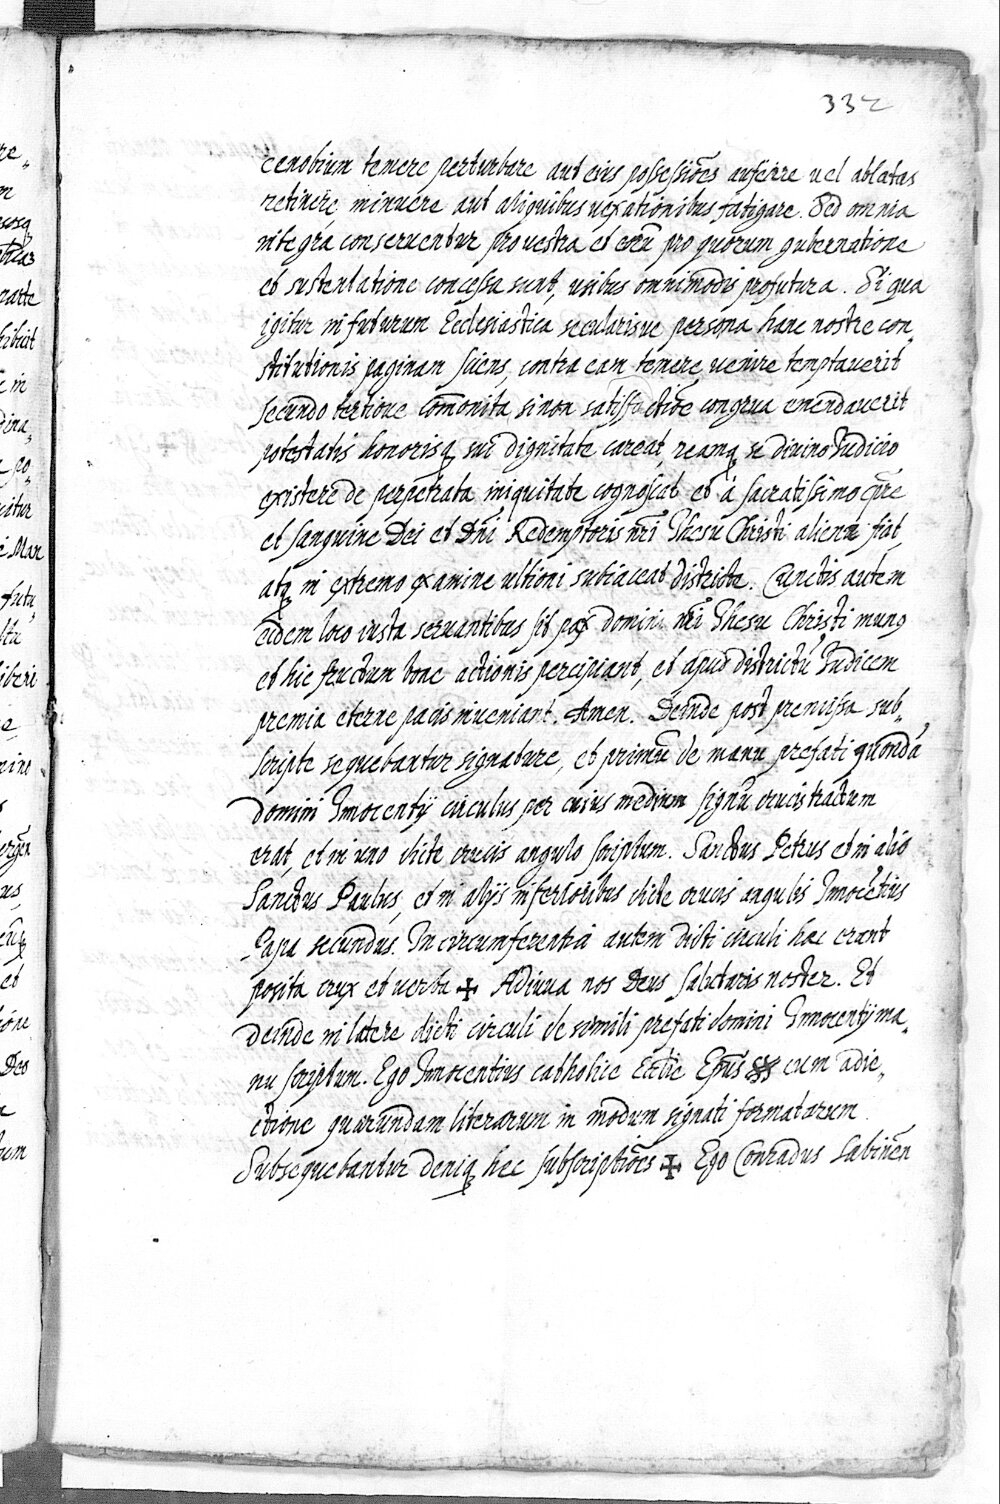 332
cenobium temere perturbare aut eius possessiões auferre vel ablatas
retinere minuere aut aliquibus vexationibus fatigare. Sed omnia
integra conseruentur pro vestra et eorũ pro quorum gubernatione
et sustentatione concessa sunt, usibus omnimodis profutura. Si qua
igitur in futurum Ecclesiastica secularisue persona hanc nostre con„
stitutionis paginam sciens, contra eam temere venire temptaverit
secundo tertioue com̃onita, si non satisfactiõe congrua emendaverit
potestatis honorisq sui dignitate careat, reamq se divino Iudicio
existere de perpetrata iniquitate cognoscat et á sacratissimo cor̃pre
et sanguine Dei et Dñi Redemptoris ñri Ihesu Christi aliena fiat
atq in extremo examine ultioni subiaceat districte. Cunctis autem
eidem loco iusta seruantibus sit pax domini ñri Ihesu Christi
et hic fructum bone actionis percipiant, et apud districtũ Iudicem
premia eterne pacis inveniant. Amen. Deinde post premissa sub„
scripte sequebantur signature, et primũ de manu prefati quondã
domini Innocentij circulus per cuius medium signũ crucis tractum
erat, et in uno dicte crucis angulo scriptum. Sanctus Petrus et in alio
Sanctus Paulus, et in alijs inferioribus dicte crucis angulis Innocẽtius
Papa secundus. In circumferentia autem dicti circuli hec erant
posita crux et verba ✠ Adiuva nos Deus salutaris noster. Et
deinde in latere dicti circuli de simili prefati domini Innocentij ma„
nu scriptum. Ego Innocentius catholice Ecclie Ep̃us cum adie„
ctione quarundam literarum in modum signati formatarum
Subsequebantur deniq hec subscriptiões ✠ Ego Conradus Sabineñ